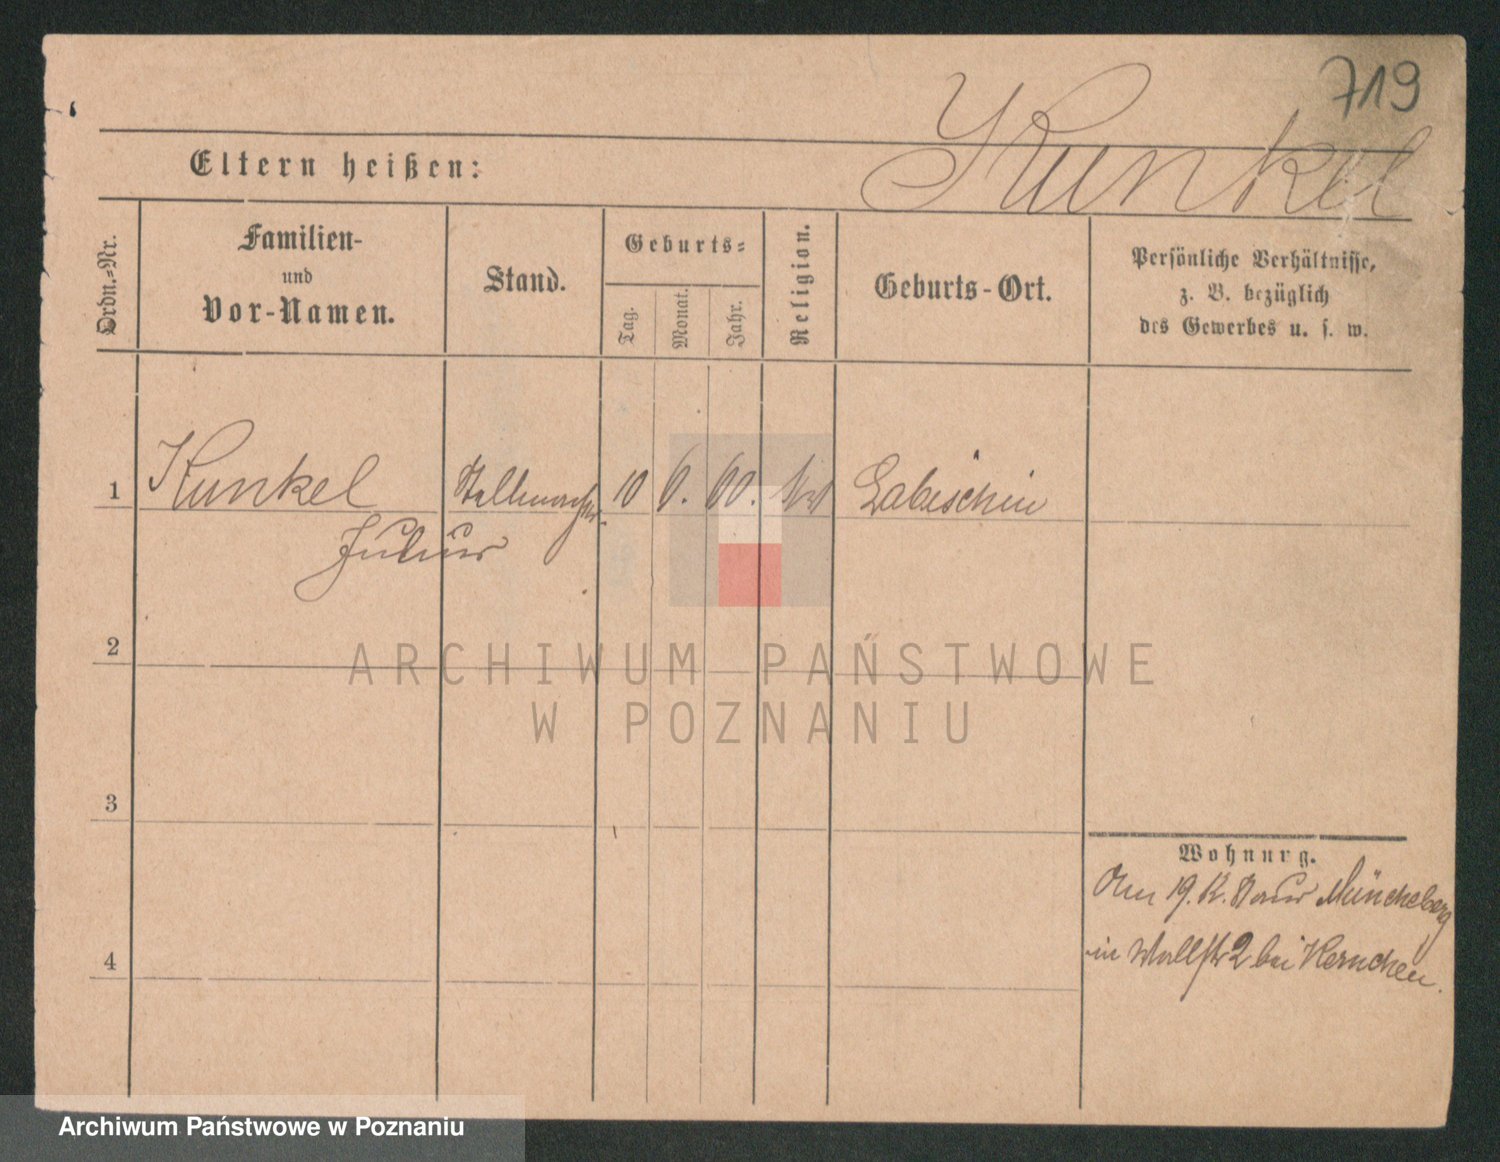 719
Kunkel
Eltern heißen:
Ordn.-Nr.
Familien-
und
Vor-Namen.
Stand.
Geburts=
Tag.
Monat.
Jahr.
Religion.
Geburts-Ort.
Persönliche Verhältnisse,
z. B. bezüglich
des Gewerbes u. s. w.
1
Kunkel
Julius
Stellmacher
10
6.
60.
Labischin
2
3
4
Wohnung.
19. Müncheberg
in Wallstr 2 bei Kernchen.
ARCHIWUM PAŃSTWOWE
W POZNANIU
Archiwum Państwowe w Poznaniu